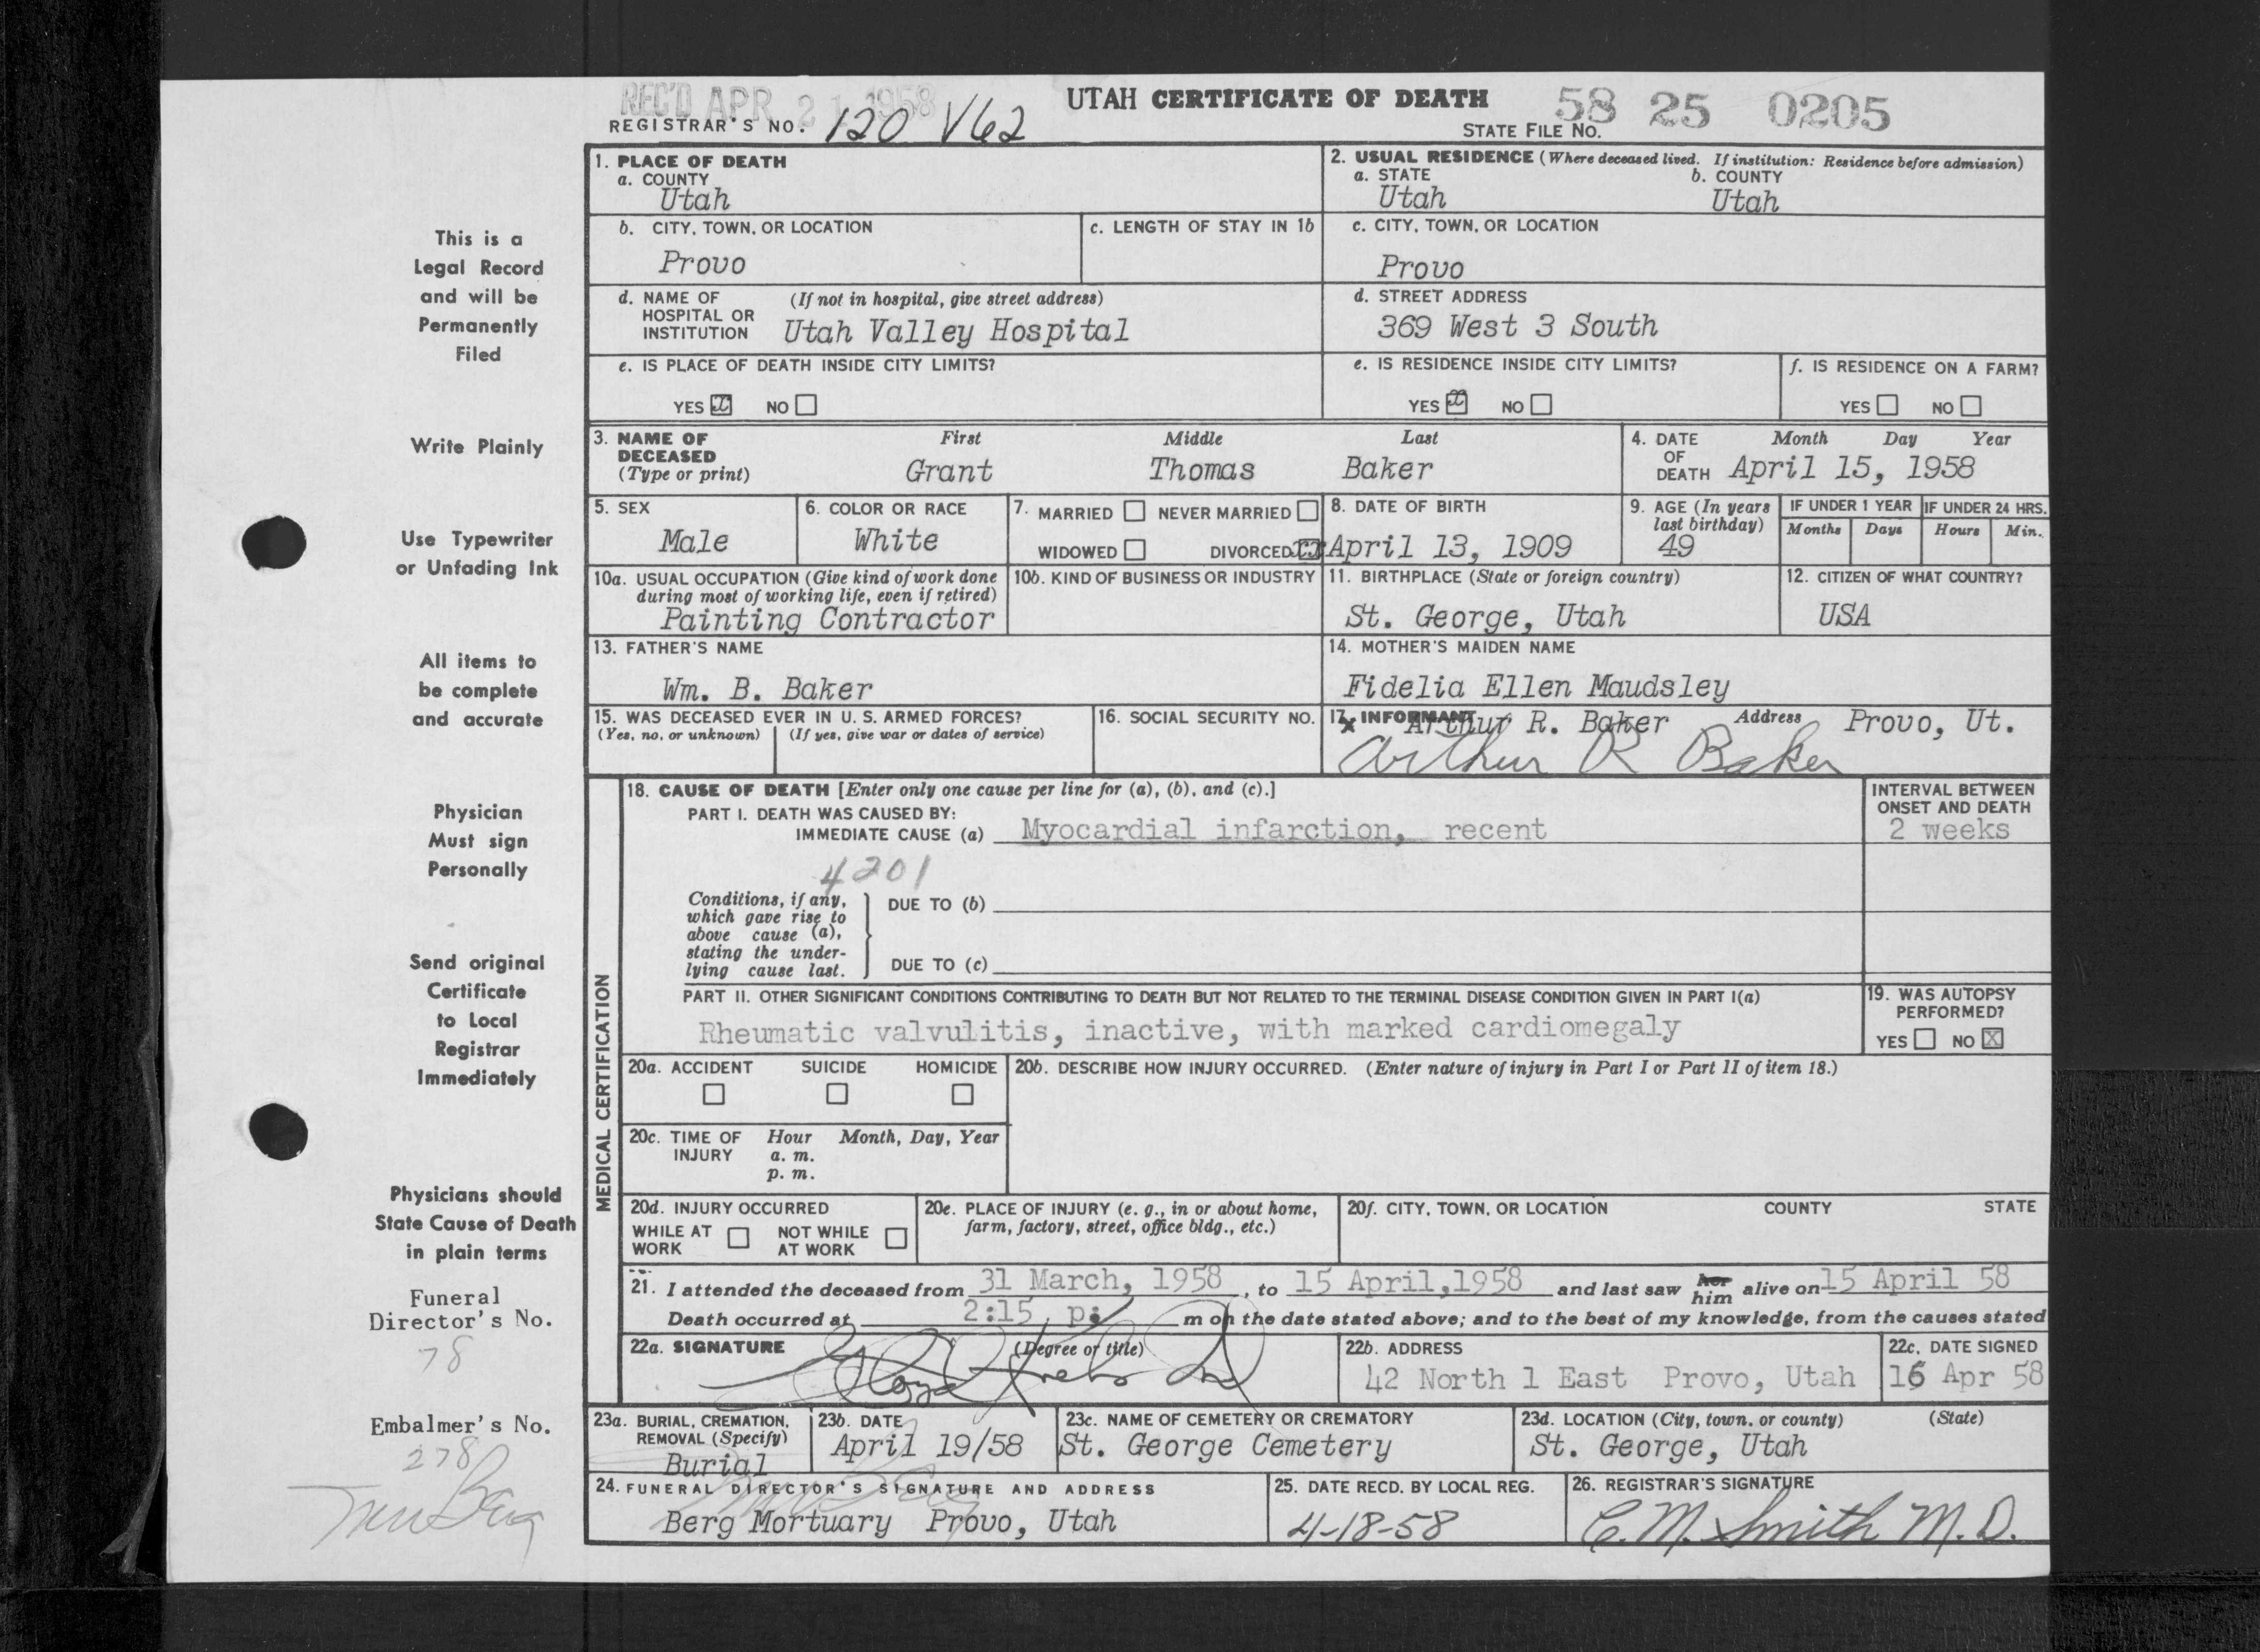 REC'D APR 21 1958
UTAH CERTIFICATE OF DEATH
58 25 0205
REGISTRAR'S NO. 120 V62
STATE FILE NO.
1. PLACE OF DEATH
a. COUNTY
Utah
2. USUAL RESIDENCE (Where deceased lived. If institution: Residence before admission)
a. STATE b. COUNTY
Utah Utah
b. CITY, TOWN, OR LOCATION
Provo
c. LENGTH OF STAY IN 1b
c. CITY, TOWN, OR LOCATION
Provo
d. NAME OF (If not in hospital, give street address)
HOSPITAL OR
INSTITUTION Utah Valley Hospital
d. STREET ADDRESS
369 West 3 South
e. IS PLACE OF DEATH INSIDE CITY LIMITS?
YES x NO
e. IS RESIDENCE INSIDE CITY LIMITS?
YES x NO
f. IS RESIDENCE ON A FARM?
YES NO
3. NAME OF First Middle Last
DECEASED
(Type or print) Grant Thomas Baker
4. DATE Month Day Year
OF
DEATH April 15, 1958
5. SEX
Male
6. COLOR OR RACE
White
7. MARRIED NEVER MARRIED
WIDOWED DIVORCED xx
8. DATE OF BIRTH
April 13, 1909
9. AGE (In years
last birthday)
49
IF UNDER 1 YEAR IF UNDER 24 HRS.
Months Days Hours Min.
10a. USUAL OCCUPATION (Give kind of work done
during most of working life, even if retired)
Painting Contractor
10b. KIND OF BUSINESS OR INDUSTRY
11. BIRTHPLACE (State or foreign country)
St. George, Utah
12. CITIZEN OF WHAT COUNTRY?
USA
13. FATHER'S NAME
Wm. B. Baker
14. MOTHER'S MAIDEN NAME
Fidelia Ellen Maudsley
15. WAS DECEASED EVER IN U. S. ARMED FORCES?
(Yes, no, or unknown) (If yes, give war or dates of service)
16. SOCIAL SECURITY NO.
17. INFORMANT Arthur R. Baker Address Provo, Ut.
x Arthur R Baker
MEDICAL CERTIFICATION
18. CAUSE OF DEATH [Enter only one cause per line for (a), (b), and (c).]
PART I. DEATH WAS CAUSED BY:
IMMEDIATE CAUSE (a) Myocardial infarction, recent
INTERVAL BETWEEN
ONSET AND DEATH
2 weeks
4201
Conditions, if any,
which gave rise to
above cause (a),
stating the under-
lying cause last.
DUE TO (b)
DUE TO (c)
PART II. OTHER SIGNIFICANT CONDITIONS CONTRIBUTING TO DEATH BUT NOT RELATED TO THE TERMINAL DISEASE CONDITION GIVEN IN PART I(a)
Rheumatic valvulitis, inactive, with marked cardiomegaly
19. WAS AUTOPSY
PERFORMED?
YES NO X
20a. ACCIDENT SUICIDE HOMICIDE
20b. DESCRIBE HOW INJURY OCCURRED. (Enter nature of injury in Part I or Part II of item 18.)
20c. TIME OF Hour Month, Day, Year
INJURY a. m.
p. m.
20d. INJURY OCCURRED
WHILE AT NOT WHILE
WORK AT WORK
20e. PLACE OF INJURY (e. g., in or about home,
farm, factory, street, office bldg., etc.)
20f. CITY, TOWN, OR LOCATION COUNTY STATE
21. I attended the deceased from 31 March, 1958, to 15 April,1958 and last saw her him alive on 15 April 58
Death occurred at 2:15 p: m on the date stated above; and to the best of my knowledge, from the causes stated
22a. SIGNATURE (Degree or title)
22b. ADDRESS
42 North 1 East Provo, Utah
22c. DATE SIGNED
16 Apr 58
23a. BURIAL, CREMATION,
REMOVAL (Specify)
Burial
23b. DATE
April 19/58
23c. NAME OF CEMETERY OR CREMATORY
St. George Cemetery
23d. LOCATION (City, town, or county) (State)
St. George, Utah
24. FUNERAL DIRECTOR'S SIGNATURE AND ADDRESS
Berg Mortuary Provo, Utah
25. DATE RECD. BY LOCAL REG.
4-18-58
26. REGISTRAR'S SIGNATURE
C. M. Smith M. D.
This is a
Legal Record
and will be
Permanently
Filed
Write Plainly
Use Typewriter
or Unfading Ink
All items to
be complete
and accurate
Physician
Must sign
Personally
Send original
Certificate
to Local
Registrar
Immediately
Physicians should
State Cause of Death
in plain terms
Funeral
Director's No.
78
Embalmer's No.
278